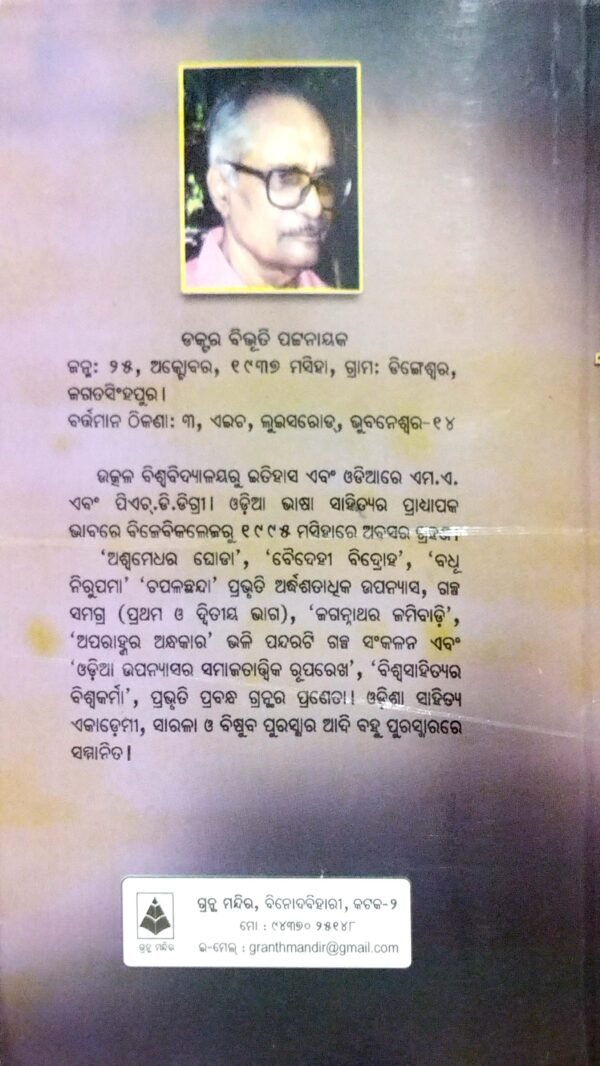 ଡକ୍ଟର ବିଭୂତି ପଟ୍ଟନାୟକ
ଜନ୍ମ: ୨୫, ଅକ୍ଟୋବର, ୧୯୩୭ ମସିହା, ଗ୍ରାମ: ଡିଙ୍ଗେଶ୍ୱର,
ଜଗତସିଂହପୁର।
ବର୍ତ୍ତମାନ ଠିକଣା: ୩, ଏଇଚ, ଲୁଇସରୋଡ୍, ଭୁବନେଶ୍ୱର-୧୪
ଉତ୍କଳ ବିଶ୍ୱବିଦ୍ୟାଳୟରୁ ଇତିହାସ ଏବଂ ଓଡିଆରେ ଏମ.ଏ.
ଏବଂ ପିଏଚ୍.ଡି.ଡିଗ୍ରୀ। ଓଡ଼ିଆ ଭାଷା ସାହିତ୍ୟର ପ୍ରାଧ୍ୟାପକ
ଭାବରେ ବିଜେବିକଲେଜରୁ ୧୯୯୫ ମସିହାରେ ଅବସର ଗ୍ରହଣ।
'ଅଶ୍ୱମେଧର ଘୋଡା', 'ବୈଦେହୀ ବିଦ୍ରୋହ', 'ବଧୂ
ନିରୁପମା' 'ଚପଳଛନ୍ଦା' ପ୍ରଭୃତି ଅର୍ଦ୍ଧଶତାଧିକ ଉପନ୍ୟାସ, ଗଳ୍ପ
ସମଗ୍ର (ପ୍ରଥମ ଓ ଦ୍ୱିତୀୟ ଭାଗ), 'ଜଗନ୍ନାଥର ଜମିବାଡ଼ି',
'ଅପରାହ୍ଣର ଅନ୍ଧକାର' ଭଳି ପନ୍ଦରଟି ଗଳ୍ପ ସଂକଳନ ଏବଂ
'ଓଡ଼ିଆ ଉପନ୍ୟାସର ସମାଜତାତ୍ତ୍ୱିକ ରୂପରେଖ', 'ବିଶ୍ୱସାହିତ୍ୟର
ବିଶ୍ୱକର୍ମା', ପ୍ରଭୃତି ପ୍ରବନ୍ଧ ଗ୍ରନ୍ଥର ପ୍ରଣେତା। ଓଡ଼ିଶା ସାହିତ୍ୟ
ଏକାଡ଼େମୀ, ସାରଳା ଓ ବିଷୁବ ପୁରସ୍କାର ଆଦି ବହୁ ପୁରସ୍କାରରେ
ସମ୍ମାନିତ।
ଗ୍ରନ୍ଥ ମନ୍ଦିର, ବିନୋଦବିହାରୀ, କଟକ-୨
ମୋ : ୯୪୩୭୦ ୨୫୧୪୮
ଇ-ମେଲ୍ : granthmandir@gmail.com
ଗ୍ରନ୍ଥ ମନ୍ଦିର